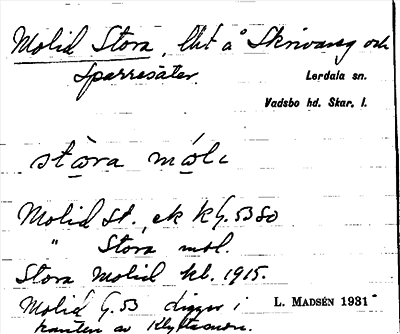 Molid Stora, lht å Skrivareg och
Sparresäter.
Lerdala sn.
Vadsbo hd. Skar. l.
stɷ̀ra mǫ́lɩ
Molid St. ek kG. 53 80
" Stora mol.
Stora Molid kb. 1915.
Molid G. 53 ligger i
kanten av Klyftamon.
L. MADSÉN 1931